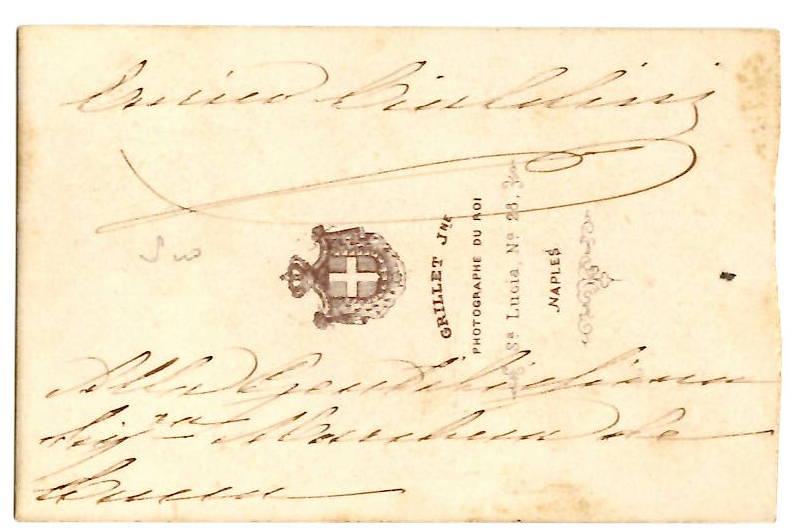 Enrico Cialdini
GRILLET Jne
PHOTOGRAPHE DU ROI
Sa Lucia, No 28,
NAPLES
Alla Gentilissima
Sigra Marchesa de